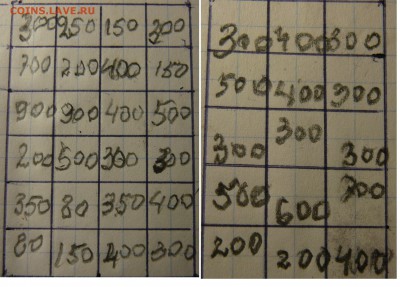 COINS.LAVE.RU
300 250 150 300
700 200 400 150
900 900 400 500
200 500 300 300
350 80 350 400
80 150 400 300
300 400 800
500 400 900
300
300 300
500 600 700
200 200 400